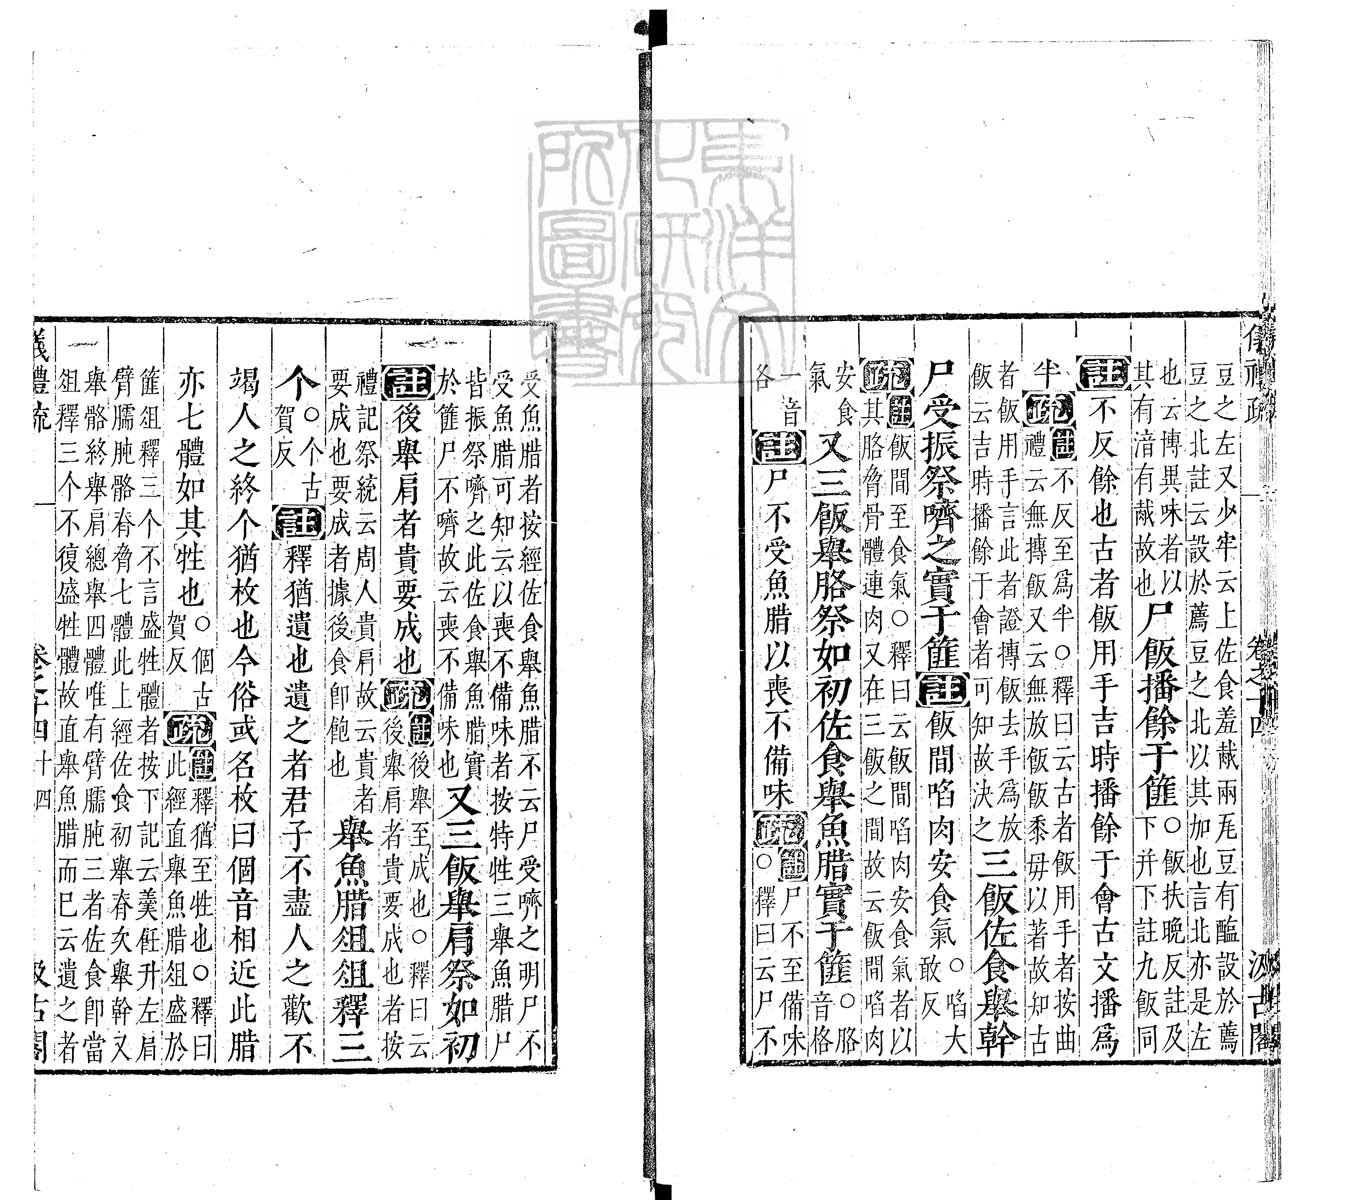 儀禮疏
卷之十四
汲古閣
豆之左又少牢云上佐食羞胾兩瓦豆有醢設於薦
豆之北註云設於薦豆之北以其加也言北亦是左
也云摶異味者以
其有湆有胾故也
尸飯播餘于篚
○飯扶晚反註及
下并下註九飯同
註不反餘也古者飯用手吉時播餘于會古文播爲
半
疏
註不反至爲半○釋曰云古者飯用手者按曲
禮云無摶飯又云無放飯飯黍毋以著故知古
者飯用手言此者證摶飯去手爲放
飯云吉時播餘于會者可知故決之
三飯佐食舉幹
尸受振祭嚌之實于篚
註飯間啗肉安食氣
○啗大
敢反
疏
註飯間至食氣○釋曰云飯間啗肉安食氣者以
其胳脅骨體連肉又在三飯之間故云飯間啗肉
安食
氣
又三飯舉胳祭如初佐食舉魚腊實于篚
○胳
音格
一音
各
註尸不受魚腊以喪不備味
疏
註尸不至備味
○釋曰云尸不
受魚腊者按經佐食舉魚腊不云尸受嚌之明尸不
受魚腊可知云以喪不備味者按特牲三舉魚腊尸
皆振祭嚌之此佐食舉魚腊實
於篚尸不嚌故云喪不備味也
又三飯舉肩祭如初
註後舉肩者貴要成也
疏
註後舉至成也○釋曰云
後舉肩者貴要成也者按
禮記祭統云周人貴肩故云貴者
要成也要成者據後食卽飽也
舉魚腊俎俎釋三
个
○个古
賀反
註釋猶遺也遺之者君子不盡人之歡不
竭人之終个猶枚也今俗或名枚曰個音相近此腊
亦七體如其牲也
○個古
賀反
疏
註釋猶至牲也○釋曰
此經直舉魚腊俎盛於
篚俎釋三个不言盛牲體者按下記云羹飪升左肩
臂臑肫骼脊脅七體此上經佐食初舉脊次舉幹又
舉骼終舉肩總舉四體唯有臂臑肫三者佐食卽當
俎釋三个不復盛牲體故直舉魚腊而已云遺之者
儀禮疏
卷之十四
十四
汲古閣
東洋文化研究所圖書